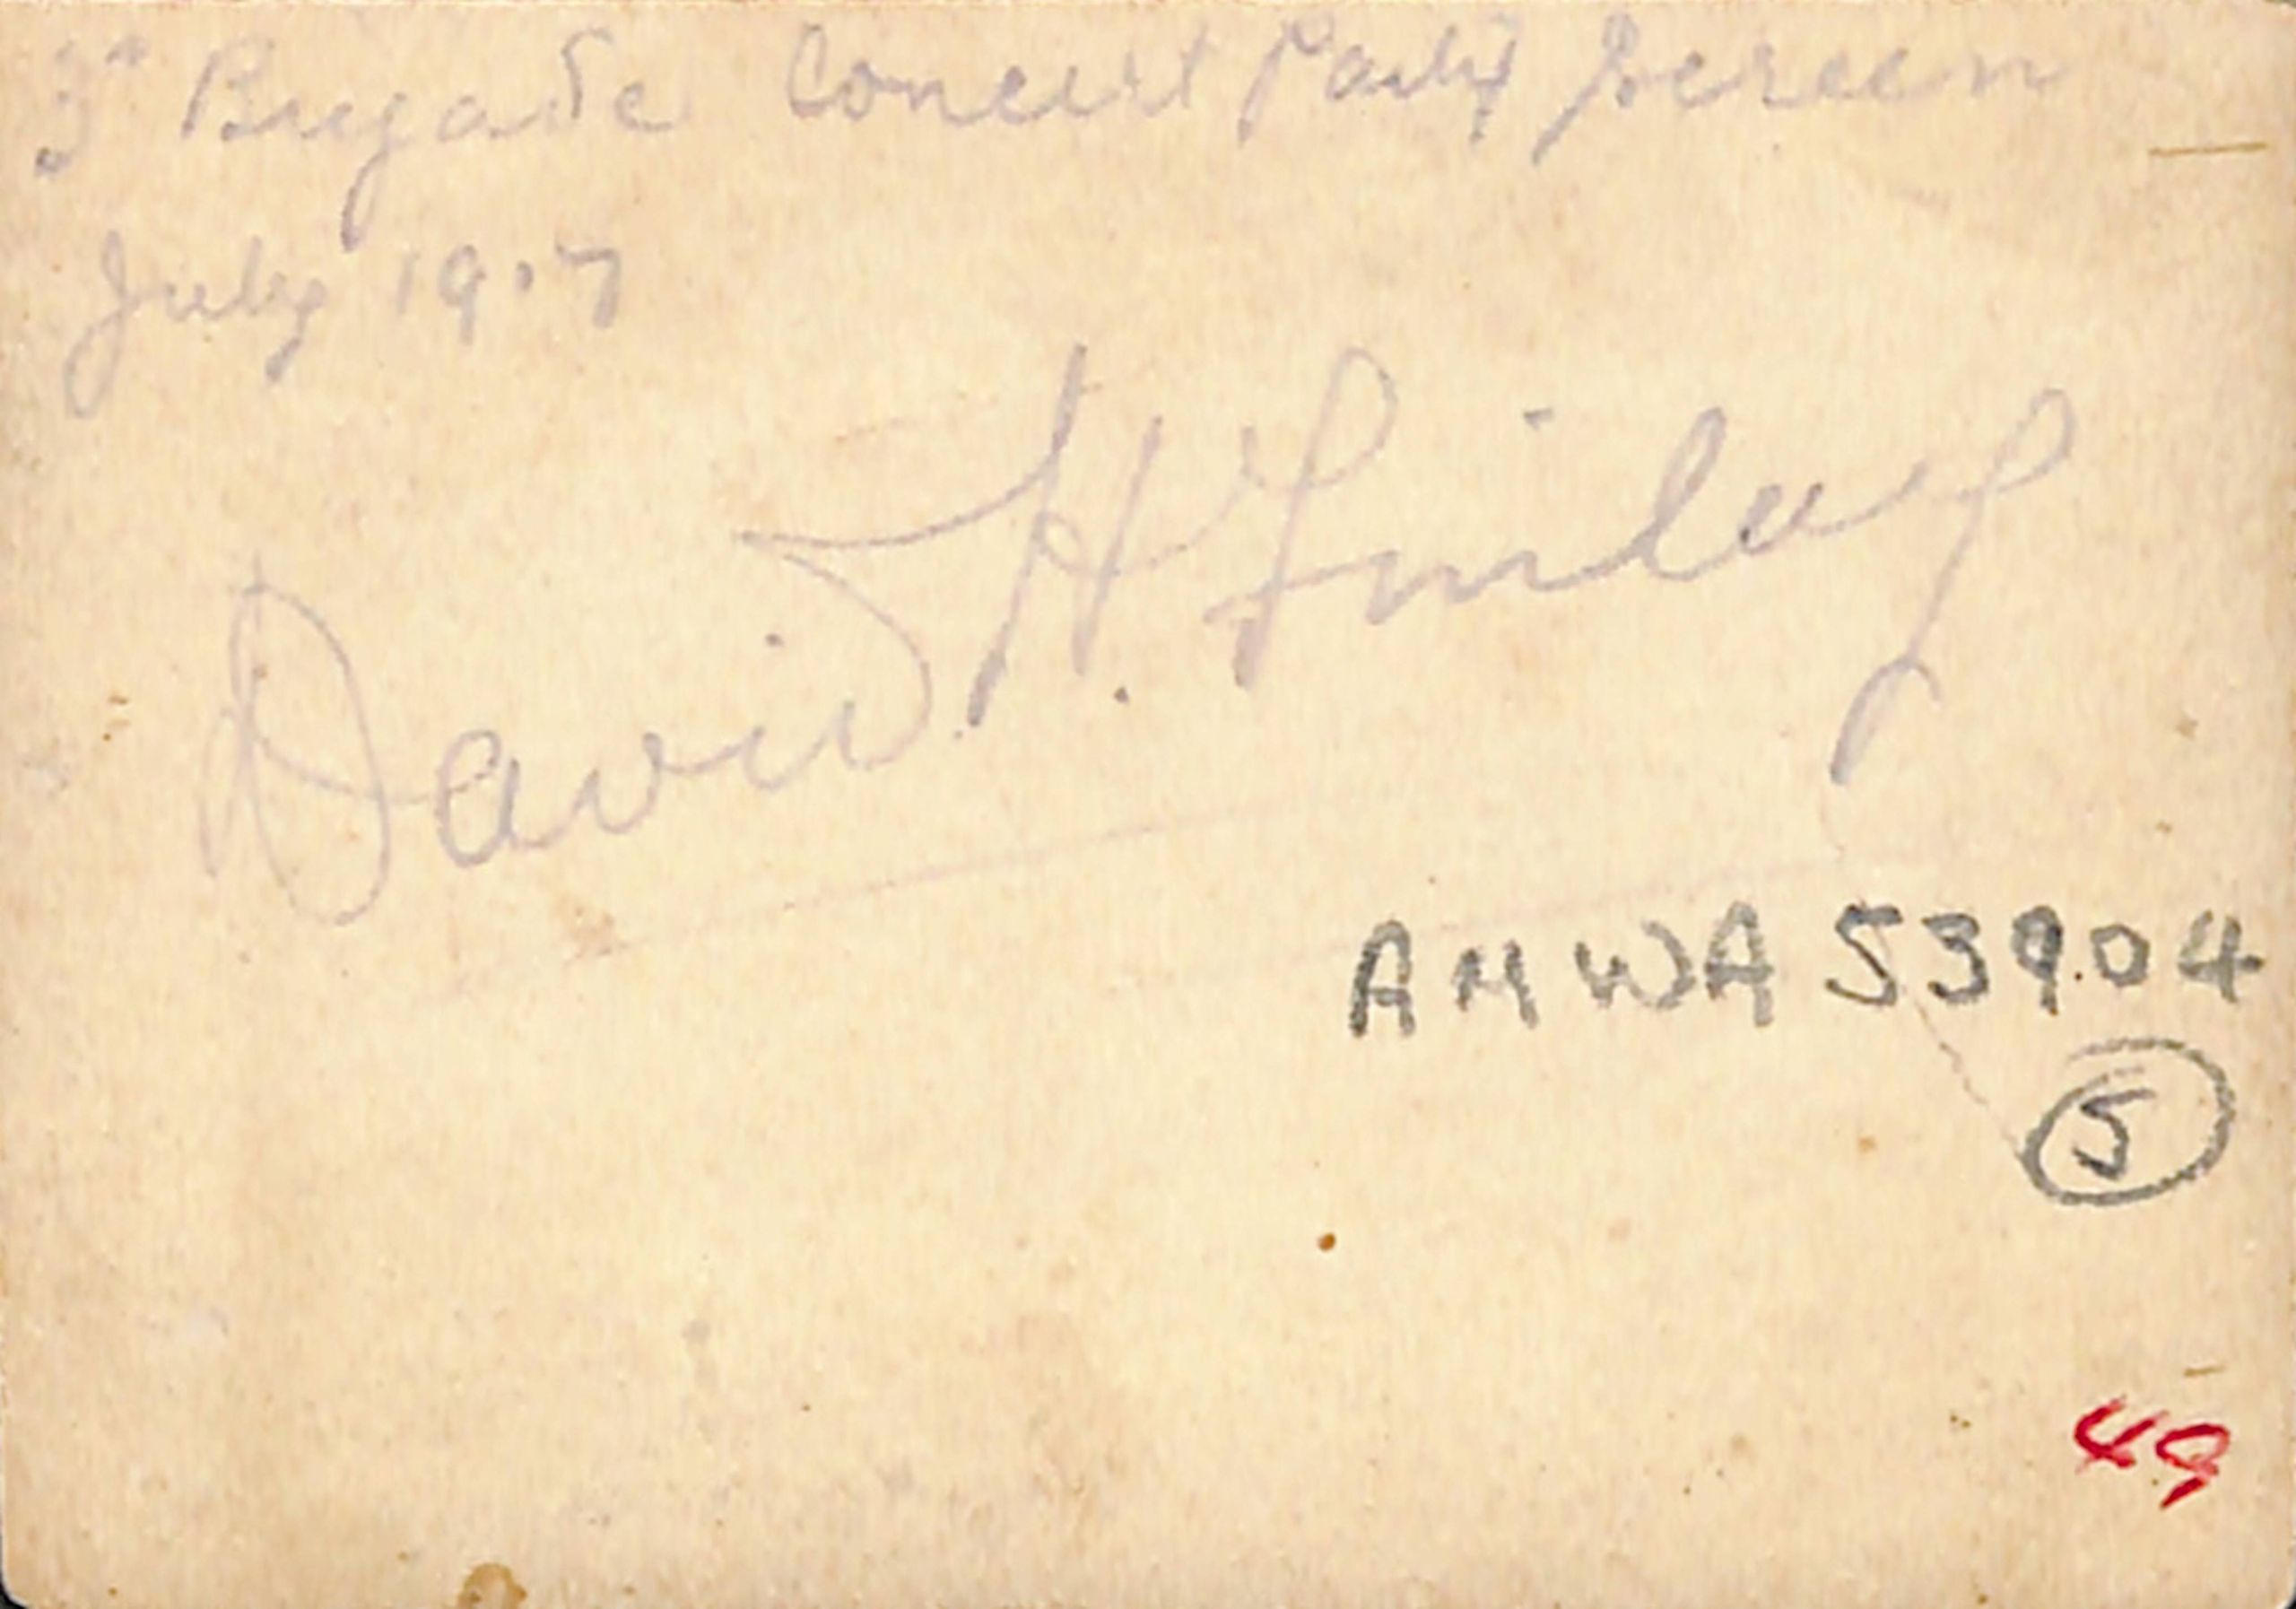 3rd Brigade Concert Party Screen
July 1917
David H. Finlay
AMWA 539.04
5
49